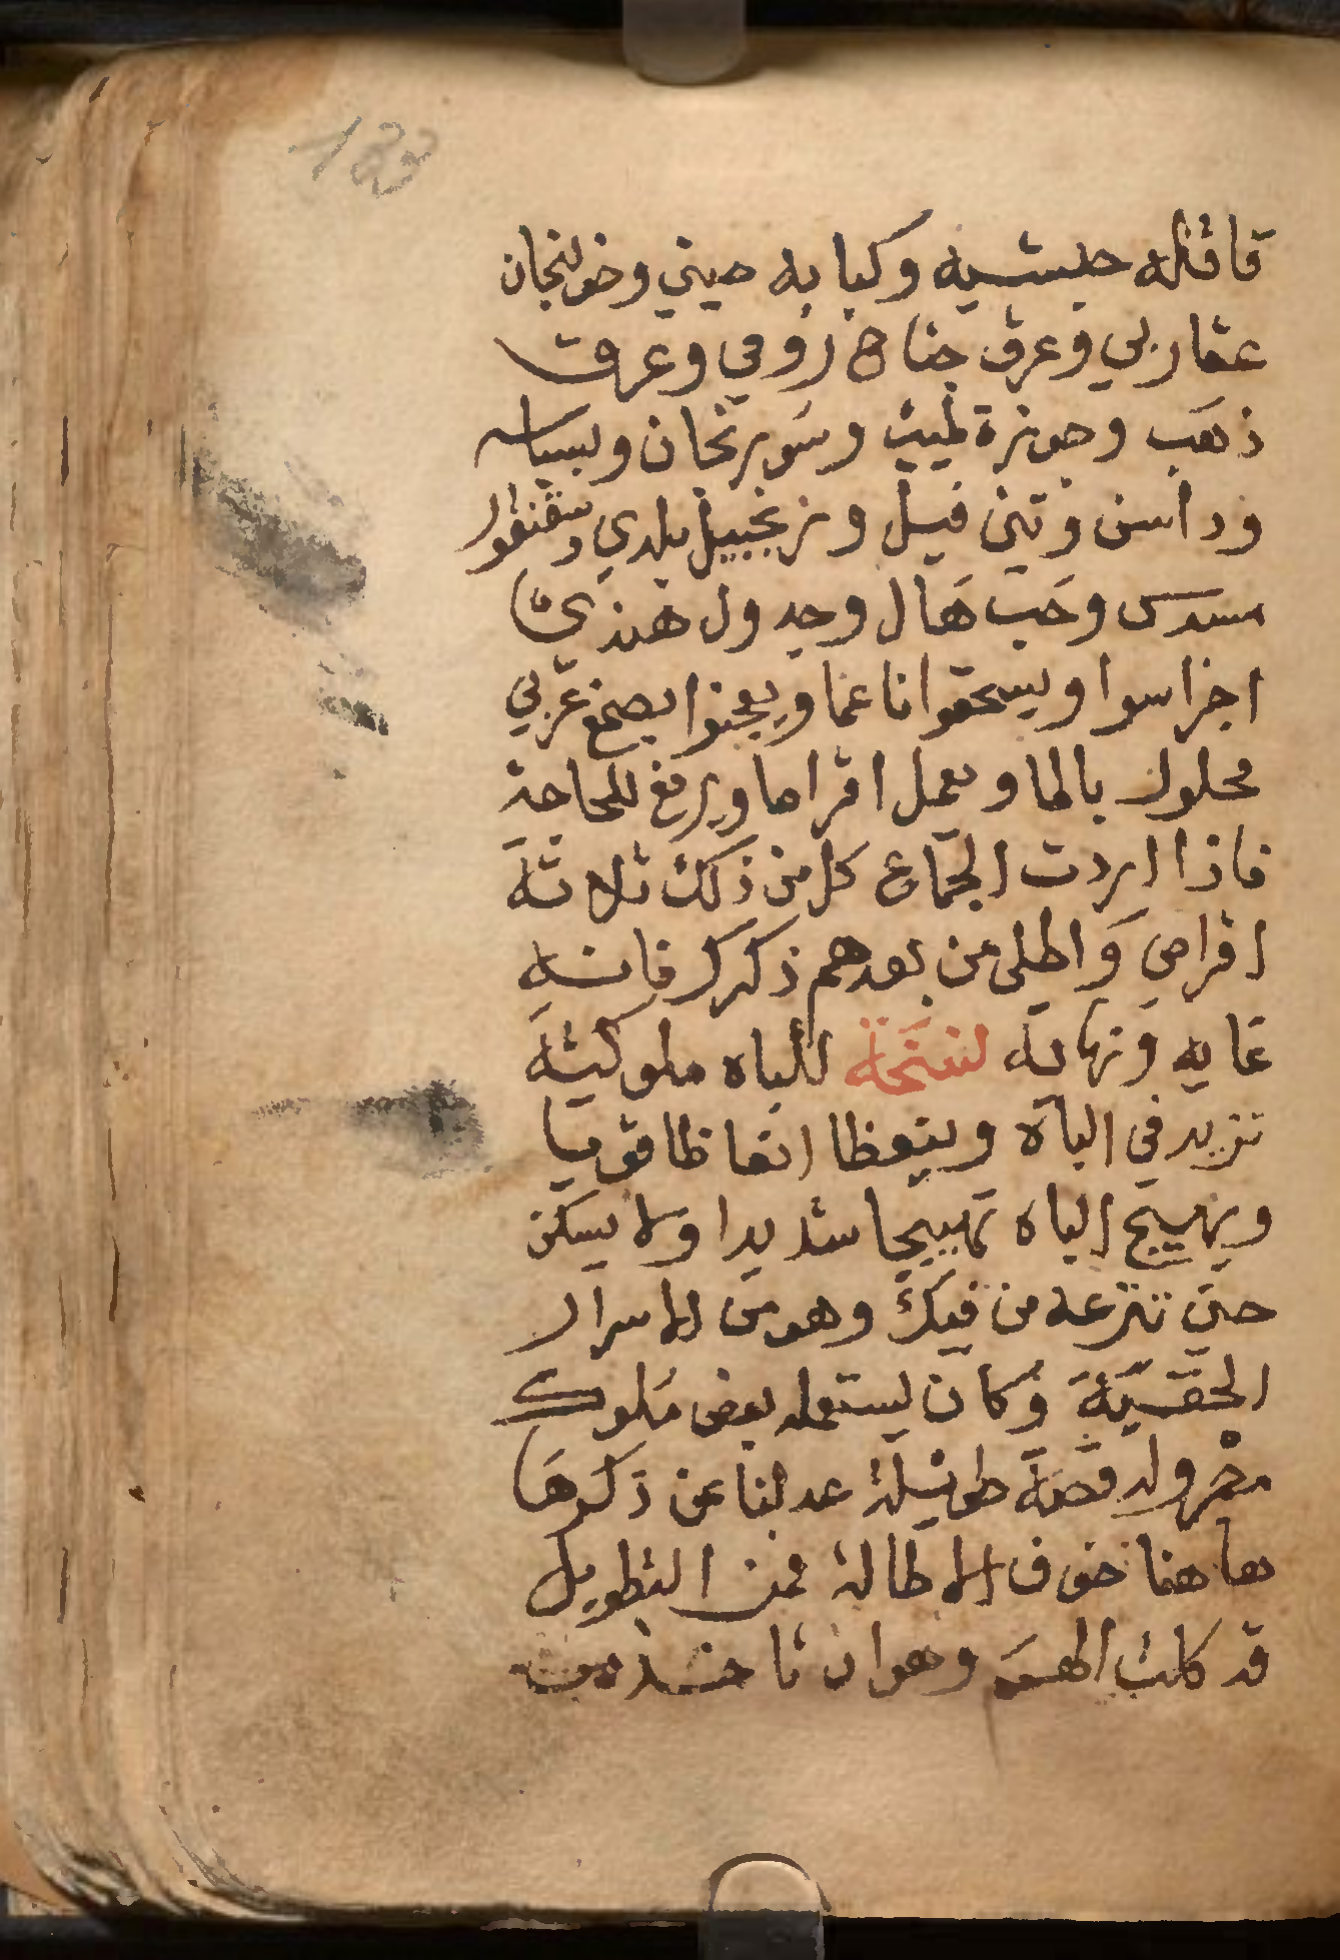 133
قاقله حبشيه وكبابه صيني وخولنجان
عقاربي وعرق جناح رومي وعرق
ذهب وجوزة طيب وسورنجان وبسباسه
وداسن وتين فيل وزنجبيل بلدي وسقنقور
وحب هال وجدول هندي
اجزا سوا ويسحقوا ناعما ويعجنوا بصمغ عربي
محلول بالما ويعمل اقراصا ويرفع للحاجة
فاذا اردت الجماع كل من ذلك ثلاثة
اقراص واطلي من بعدهم ذكرك فانه
غايه ونهايه نسخة للباه ملوكية
تزيد في الباه وينعظ انعاظا قويا
ويهيج الباه تهييجا شديدا ولا يسكن
حتى تنزعه من فيك وهو من الاسرار
الخفية وكان يستعمله بعض ملوك
مصر وله قصة طويلة عدلنا عن ذكرها
هاهنا خوف الاطالة فمن التطويل
قد كلت الهمم وهو ان تاخذ